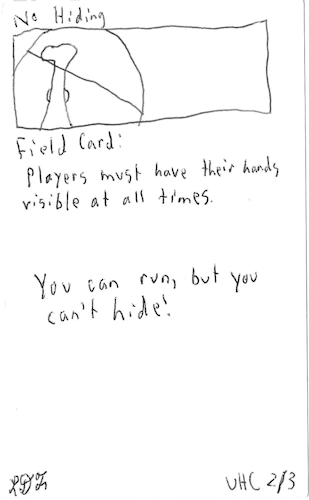 No Hiding
Field Card:
Players must have their hands
visible at all times.
You can run, but you
can't hide!
UHC 2/3